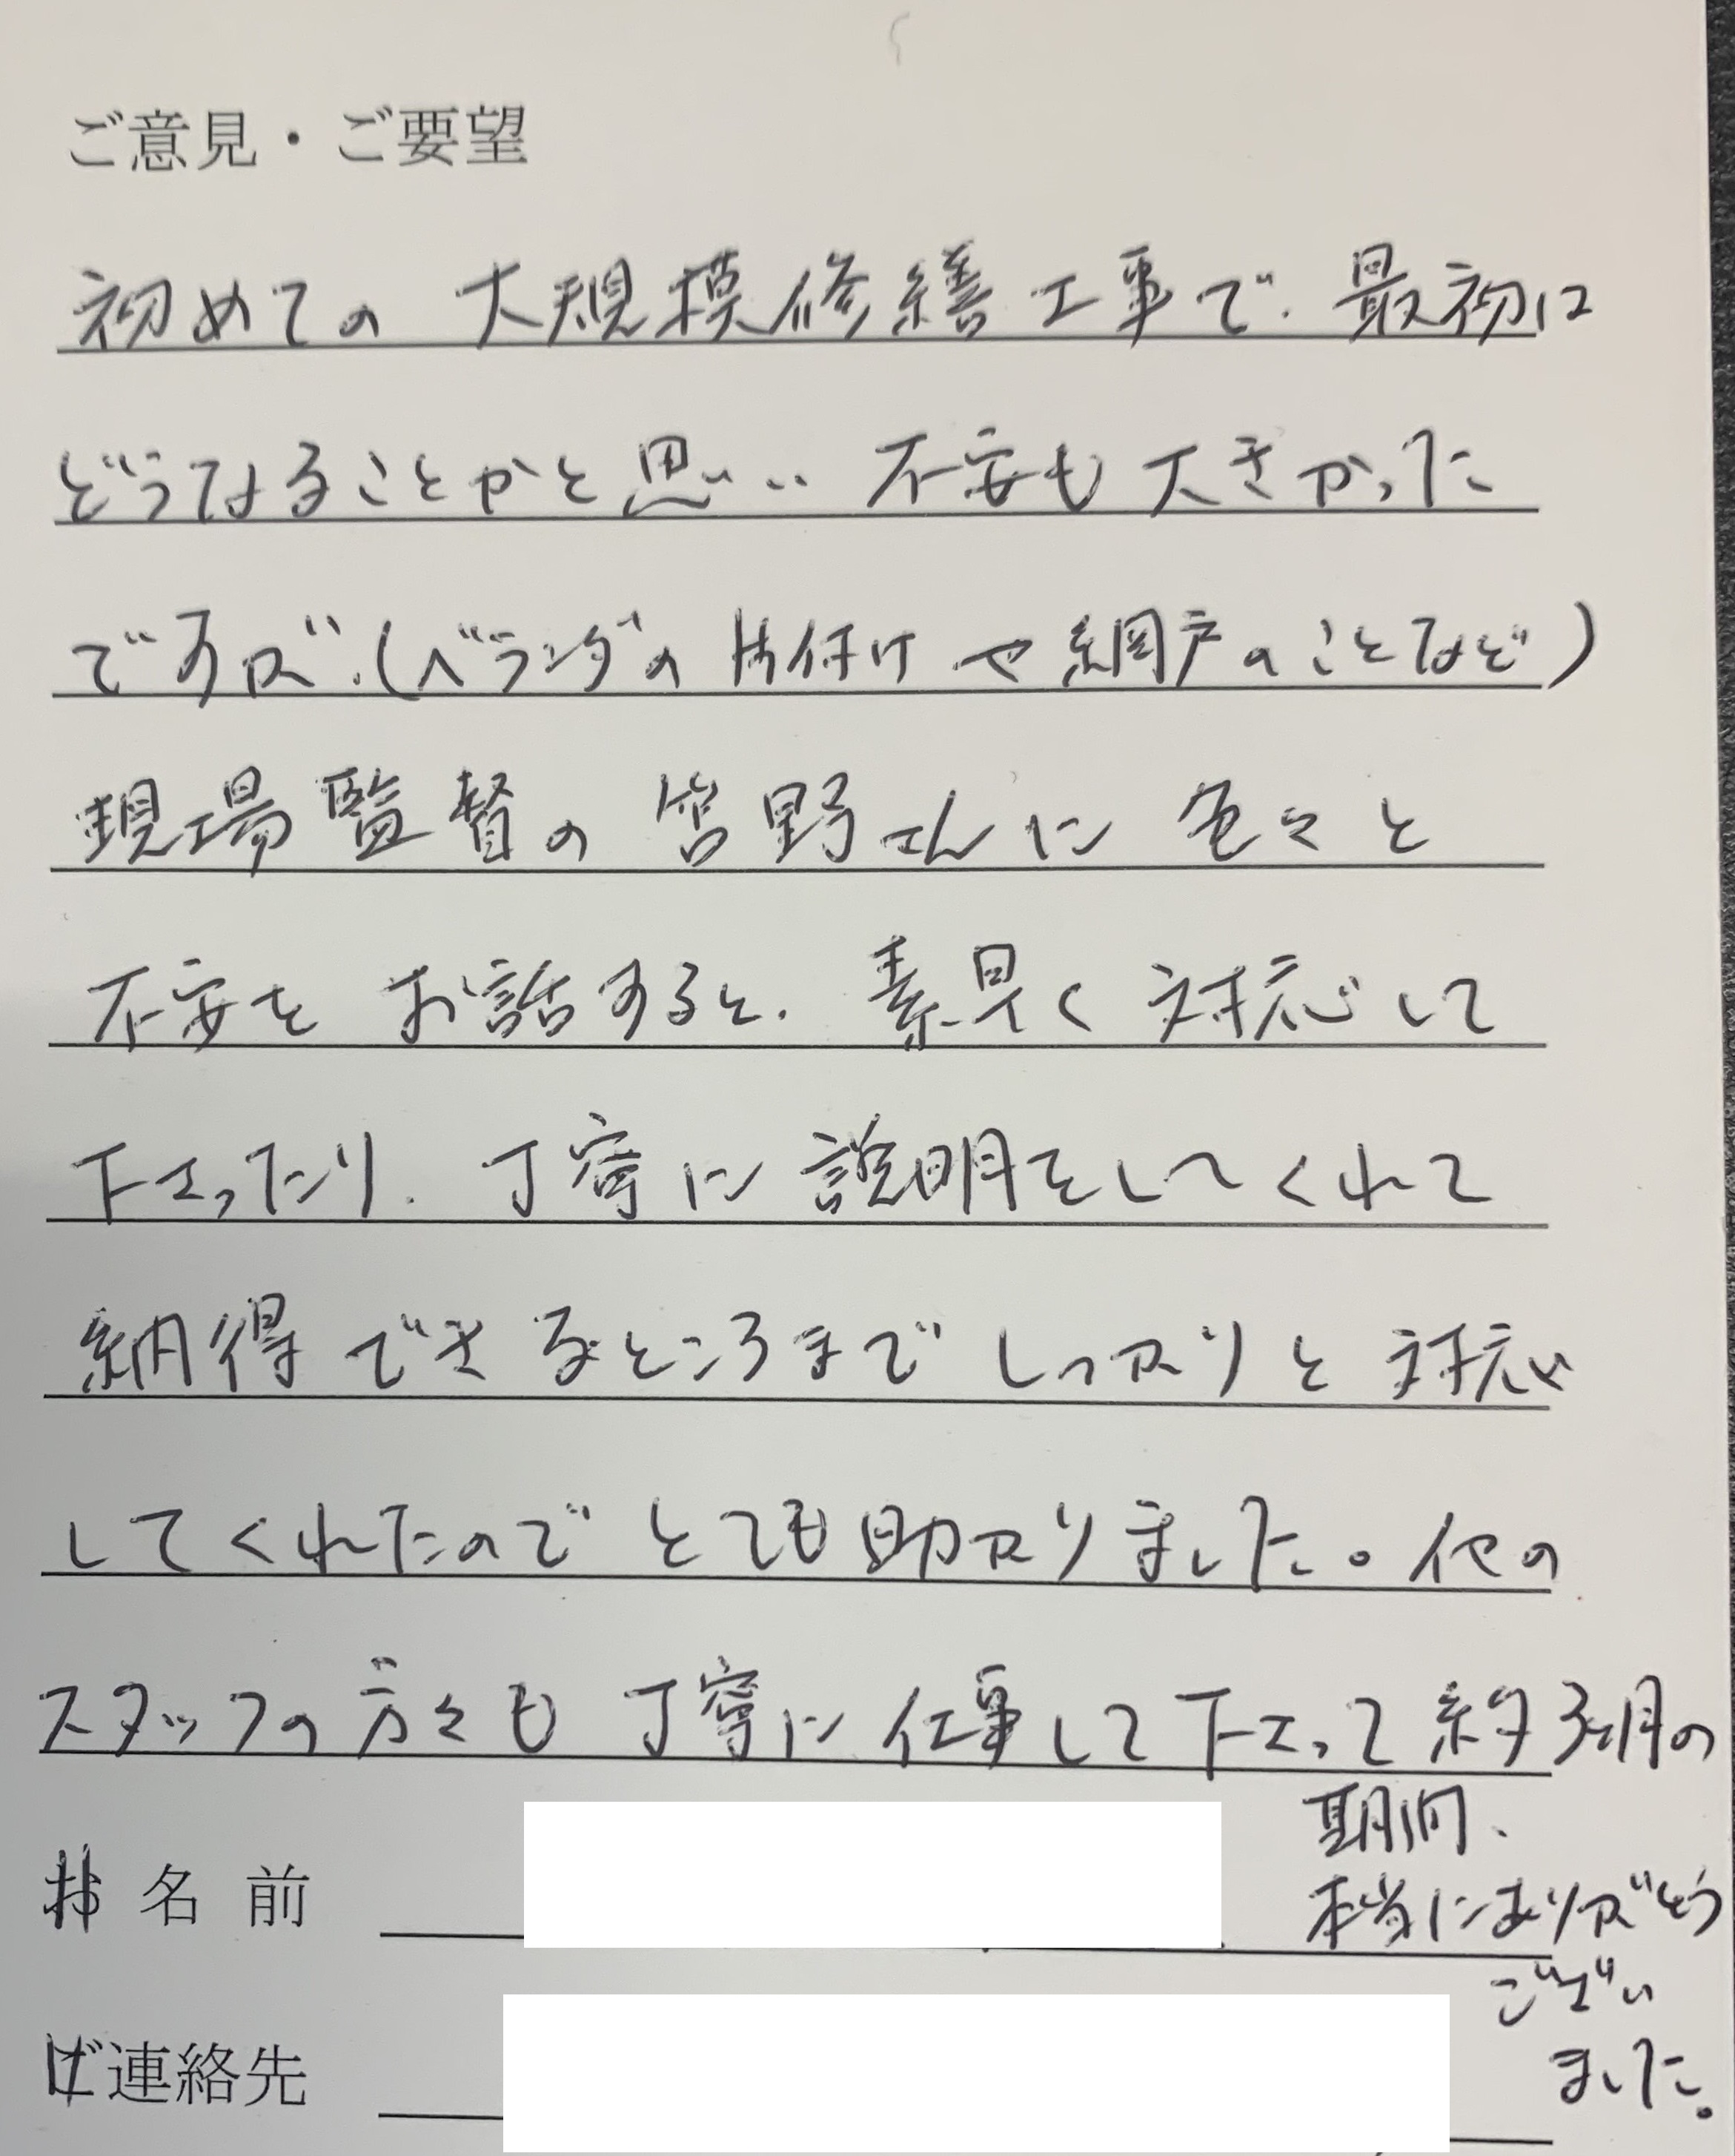 ご意見・ご要望
初めての大規模修繕工事で、最初は
どうなることかと思い… 不安も大きかった
ですが、(ベランダの片付けや網戸のことなど)
現場監督の笘野さんに色々と
不安をお話すると、素早く対応して
下さったり、丁寧に説明をしてくれて
納得できるところまでしっかりと対応
してくれたのでとても助かりました。他の
スタッフの方々も丁寧に仕事して下さって約3ヶ月の
期間、
本当にありがとう
ござい
ました。
お名前
ご連絡先